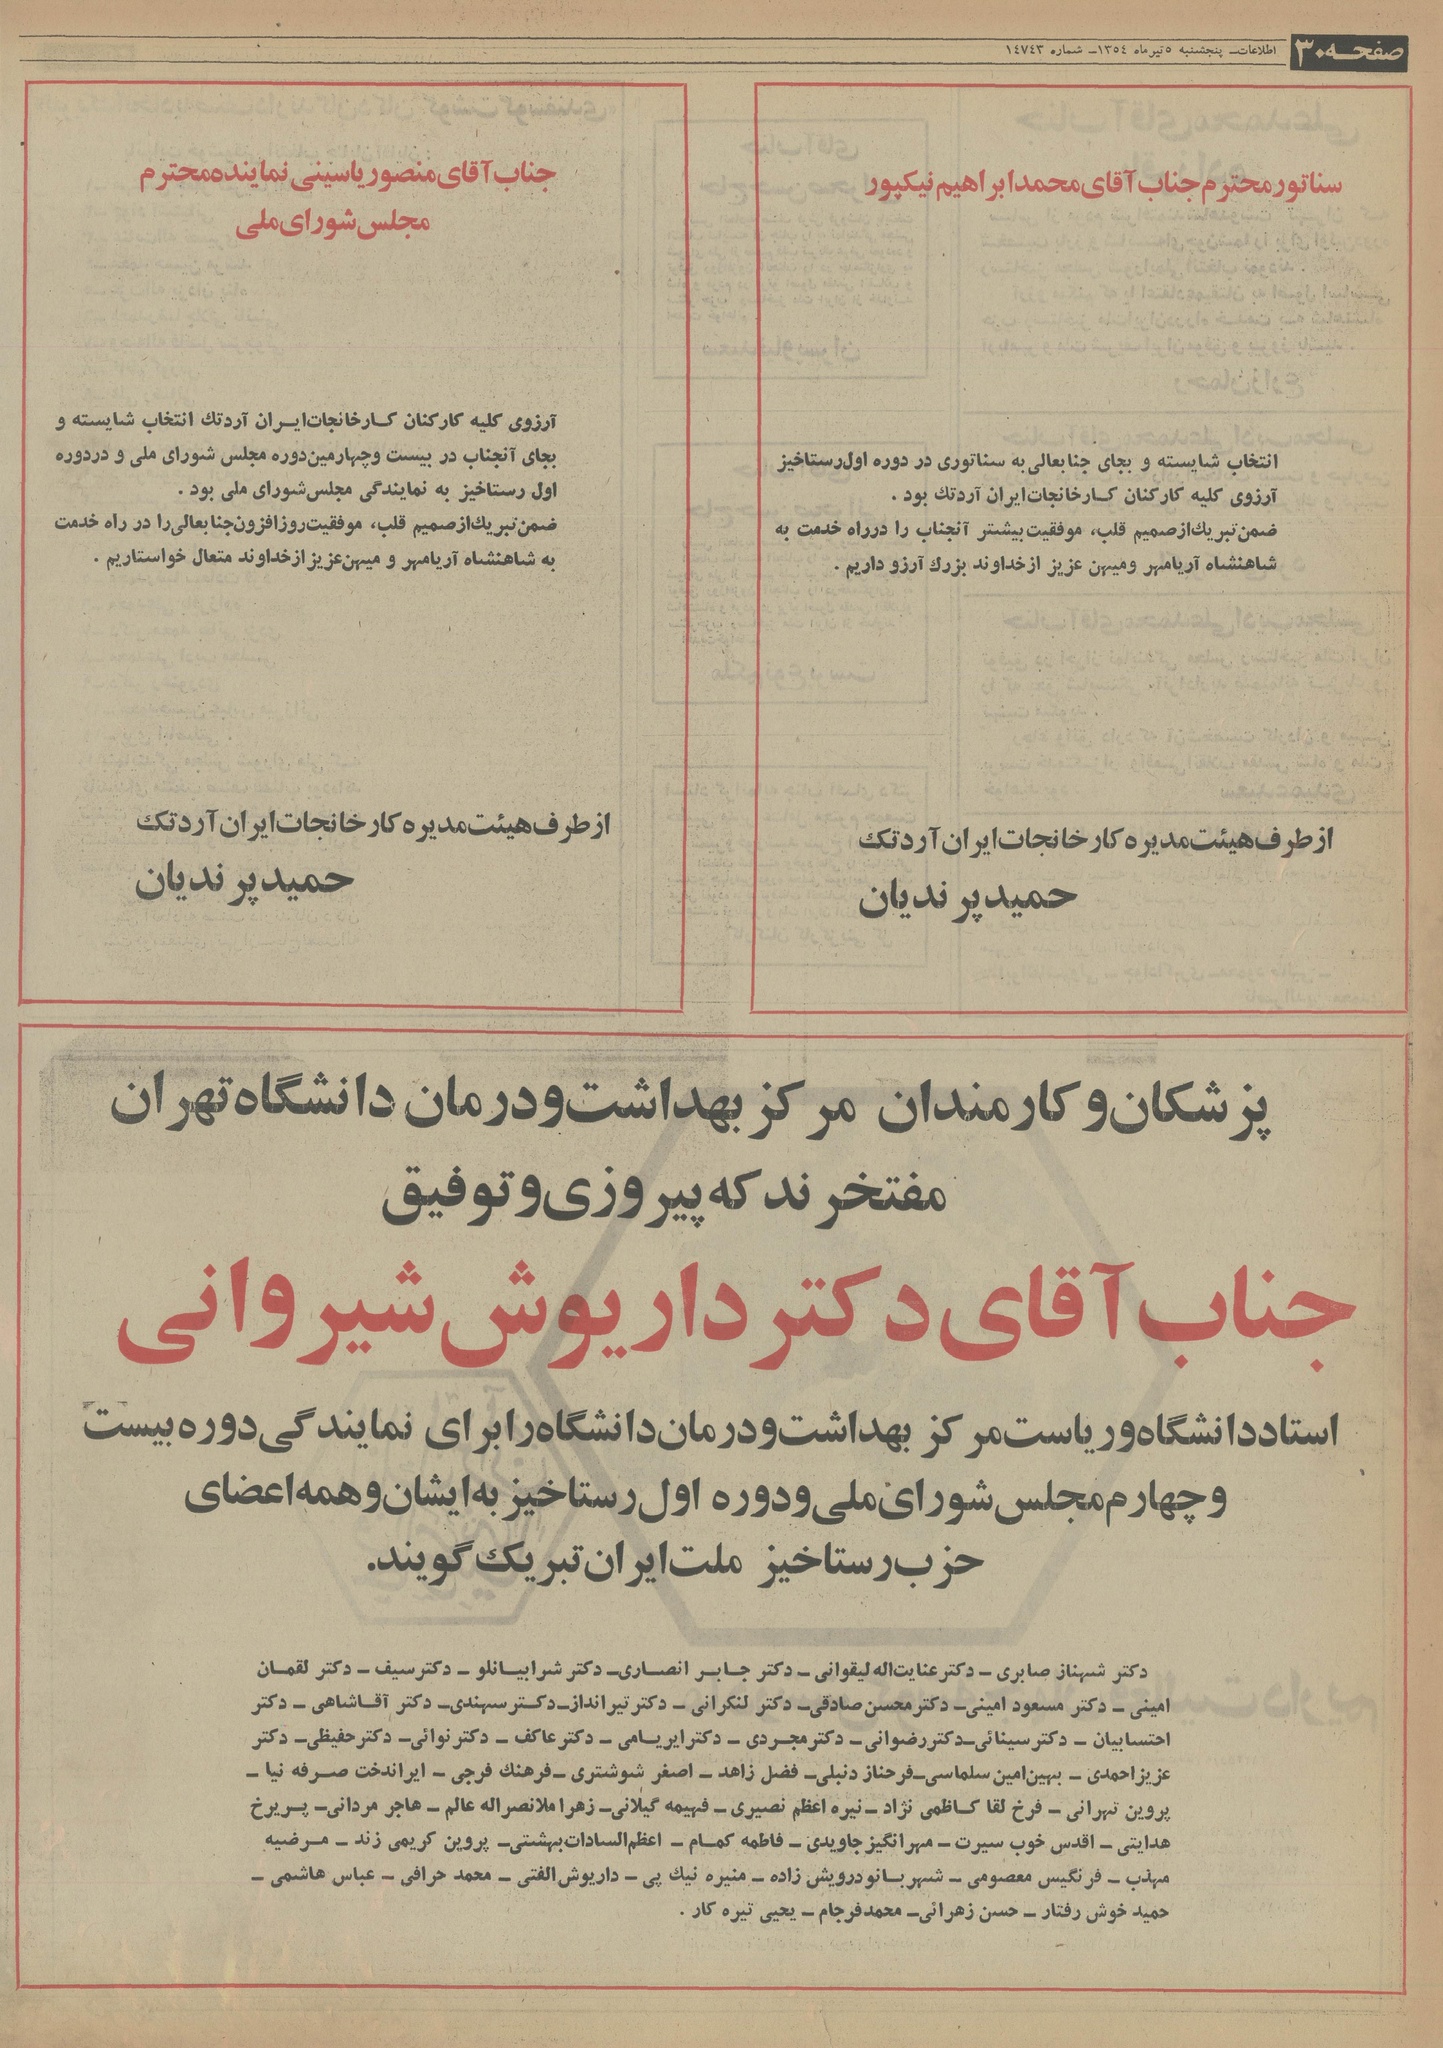 صفحه ۳۰
اطلاعات ـ پنجشنبه ۵ تیر ماه ۱۳۵۴ ـ شماره ۱۴۷۴۳
سناتور محترم جناب آقای محمد ابراهیم نیکپور
انتخاب شایسته و بجای جنابعالی به سناتوری در دوره اول رستاخیز
آرزوی کلیه کارکنان کارخانجات ایران آردتک بود .
ضمن تبریک از صمیم قلب، موفقیت بیشتر آنجناب را در راه خدمت به
شاهنشاه آریامهر و میهن عزیز از خداوند بزرگ آرزو داریم .
از طرف هیئت مدیره کارخانجات ایران آردتک
حمید پرندیان
جناب آقای منصور یاسینی نماینده محترم
مجلس شورای ملی
آرزوی کلیه کارکنان کارخانجات ایران آردتک انتخاب شایسته و
بجای آنجناب در بیست و چهارمین دوره مجلس شورای ملی و در دوره
اول رستاخیز به نمایندگی مجلس شورای ملی بود .
ضمن تبریک از صمیم قلب، موفقیت روزافزون جنابعالی را در راه خدمت
به شاهنشاه آریامهر و میهن عزیز از خداوند متعال خواستاریم .
از طرف هیئت مدیره کارخانجات ایران آردتک
حمید پرندیان
پزشکان و کارمندان مرکز بهداشت و درمان دانشگاه تهران
مفتخرند که پیروزی و توفیق
جناب آقای دکتر داریوش شیروانی
استاد دانشگاه و ریاست مرکز بهداشت و درمان دانشگاه را برای نمایندگی دوره بیست
و چهارم مجلس شورای ملی و دوره اول رستاخیز به ایشان و همه اعضای
حزب رستاخیز ملت ایران تبریک گویند.
دکتر شهناز صابری ـ دکتر عنایت اله لیقوانی ـ دکتر جابر انصاری ـ دکتر شرابیانلو ـ دکتر سیف ـ دکتر لقمان
امینی ـ دکتر مسعود امینی ـ دکتر محسن صادقی ـ دکتر لنکرانی ـ دکتر تیرانداز ـ دکتر سهندی ـ دکتر آقاشاهی ـ دکتر
احتسابیان ـ دکتر سینائی ـ دکتر رضوانی ـ دکتر مجردی ـ دکتر ایریامی ـ دکتر عاکف ـ دکتر نوائی ـ دکتر حفیظی ـ دکتر
عزیز احمدی ـ بهین امین سلماسی ـ فرحناز دنبلی ـ فضل زاهد ـ اصغر شوشتری ـ فرهنگ فرجی ـ ایراندخت صرفه نیا ـ
پروین تهرانی ـ فرخ لقا کاظمی نژاد ـ نیره اعظم نصیری ـ فهیمه گیلانی ـ زهرا ملانصراله عالم ـ هاجر مردانی ـ پریرخ
هدایتی ـ اقدس خوب سیرت ـ مهرانگیز جاویدی ـ فاطمه کمام ـ اعظم السادات بهشتی ـ پروین کریمی زند ـ مرضیه
مهذب ـ فرنگیس معصومی ـ شهربانو درویش زاده ـ منیره نیک پی ـ داریوش الفتی ـ محمد حرافی ـ عباس هاشمی ـ
حمید خوش رفتار ـ حسن زهرائی ـ محمد فرجام ـ یحیی تیره کار .